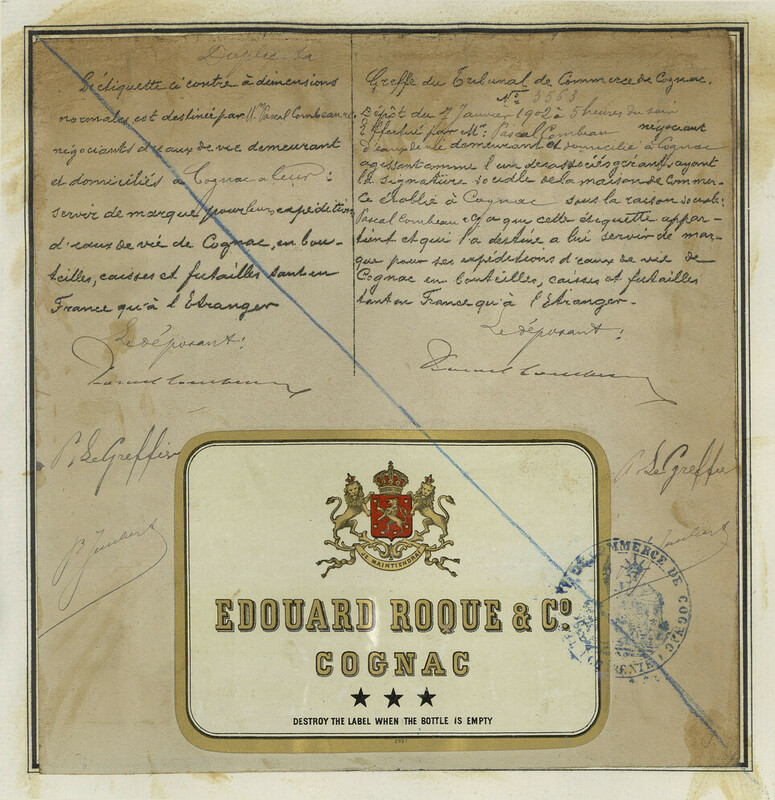 L'étiquette ci contre à dimensions
normales est destinée par Mrs Pascal Combeau &
négociants d'eaux de vie demeurant
et domiciliés à Cognac à leur :
servir de marque pour leurs expéditions
d'eaux de vie de Cognac, en bou-
teilles, caisses et futailles tant en
France qu'à l'Etranger
Le déposant :
P. Le Greffier
Greffe du Tribunal de Commerce de Cognac.
No 3563
Dépôt du 7 Janvier 1902 à 5 heures du soir
Effectué par Mr. Pascal Combeau négociant
d'eaux de vie demeurant et domicilié à Cognac
agissant comme l'un des associés gérants ayant
la signature sociale de la maison de commer-
ce établie à Cognac sous la raison sociale :
Pascal Combeau & Co que cette étiquette appar-
tient et qui l'a destiné a lui servir de mar-
que pour ses expéditions d'eaux de vie de
Cognac en bouteilles, caisses et futailles
tant en France qu'à l'Etranger.
Le déposant :
P. Le Greffier
JE MAINTIENDRAI
EDOUARD ROQUE & Co.
COGNAC
★ ★ ★
DESTROY THE LABEL WHEN THE BOTTLE IS EMPTY
COMMERCE DE COGNAC